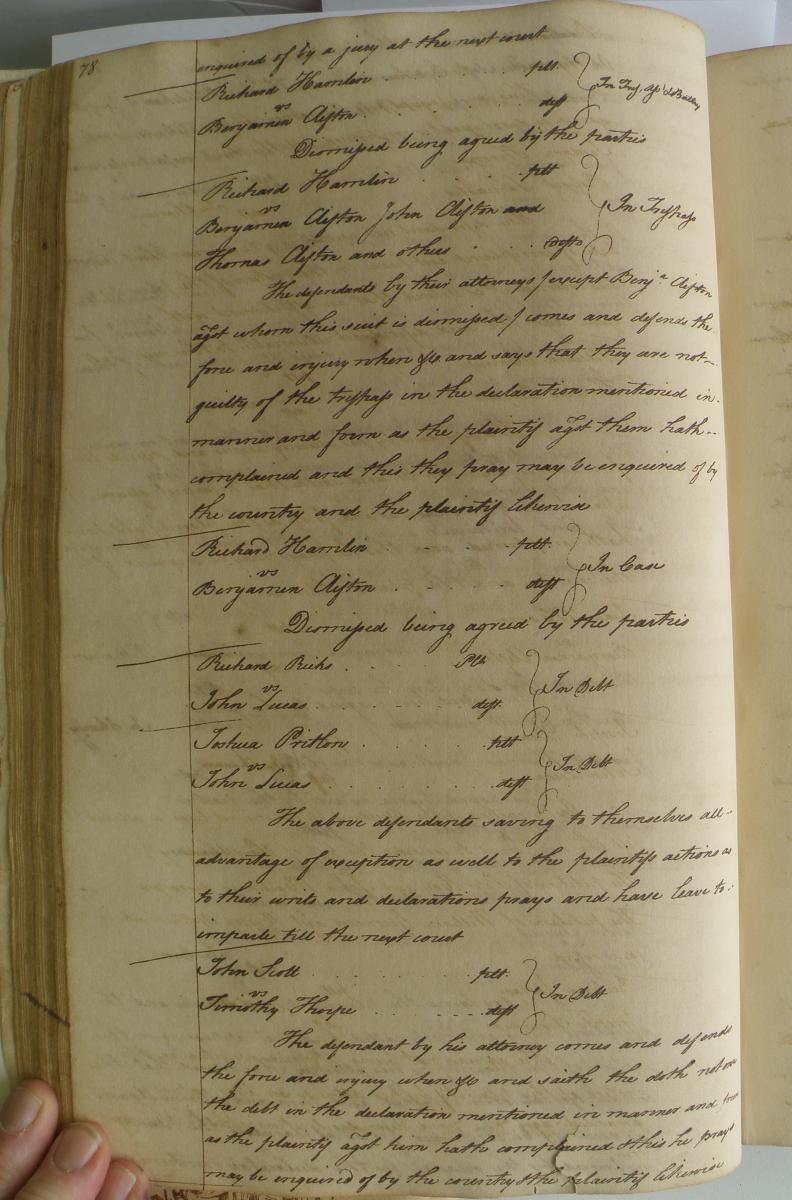 78
enquired of by a jury at the next court
Richard Hamlin . . . . . . pltt } In Tres. Asst & Battery
vs
Benjamin Clifton . . . . . . deft
Dismissed being agreed by the parties
Richard Hamlin . . . . pltt } In Tresspass
vs
Benjamin Clifton John Clifton and
Thomas Clifton and others . . . . defts
The defendants by their attorneys (except Benja. Clifton
agst whom this suit is dismissed) comes and defends the
force and injury when &c and says that they are not
guilty of the tresspass in the declaration mentioned in
manner and form as the plaintif agst them hath
complained and this they pray may be enquired of by
the country and the plaintif likewise
Richard Hamlin . . . . pltt } In Case
vs
Benjamin Clifton . . . . deft
Dismissed being agreed by the parties
Richard Ricks . . . . Plt } In Debt
vs
John Lucas . . . . . deft
Joshua Pritlow . . . . pltt } In Debt
vs
John Lucas . . . . . deft
The above defendants saving to themselves all
advantage of exception as well to the plaintifs actions as
to their writs and declarations prays and have leave to
imparle till the next court
John Scott . . . . . pltt } In Debt
vs
Timothy Thorpe . . . . deft
The defendant by his attorney comes and defends
the force and injury when &c and saith the doth not owe
the debt in the declaration mentioned in manner and form
as the plaintif agst him hath complained & this he prays
may be enquired of by the country & the plaintif likewise